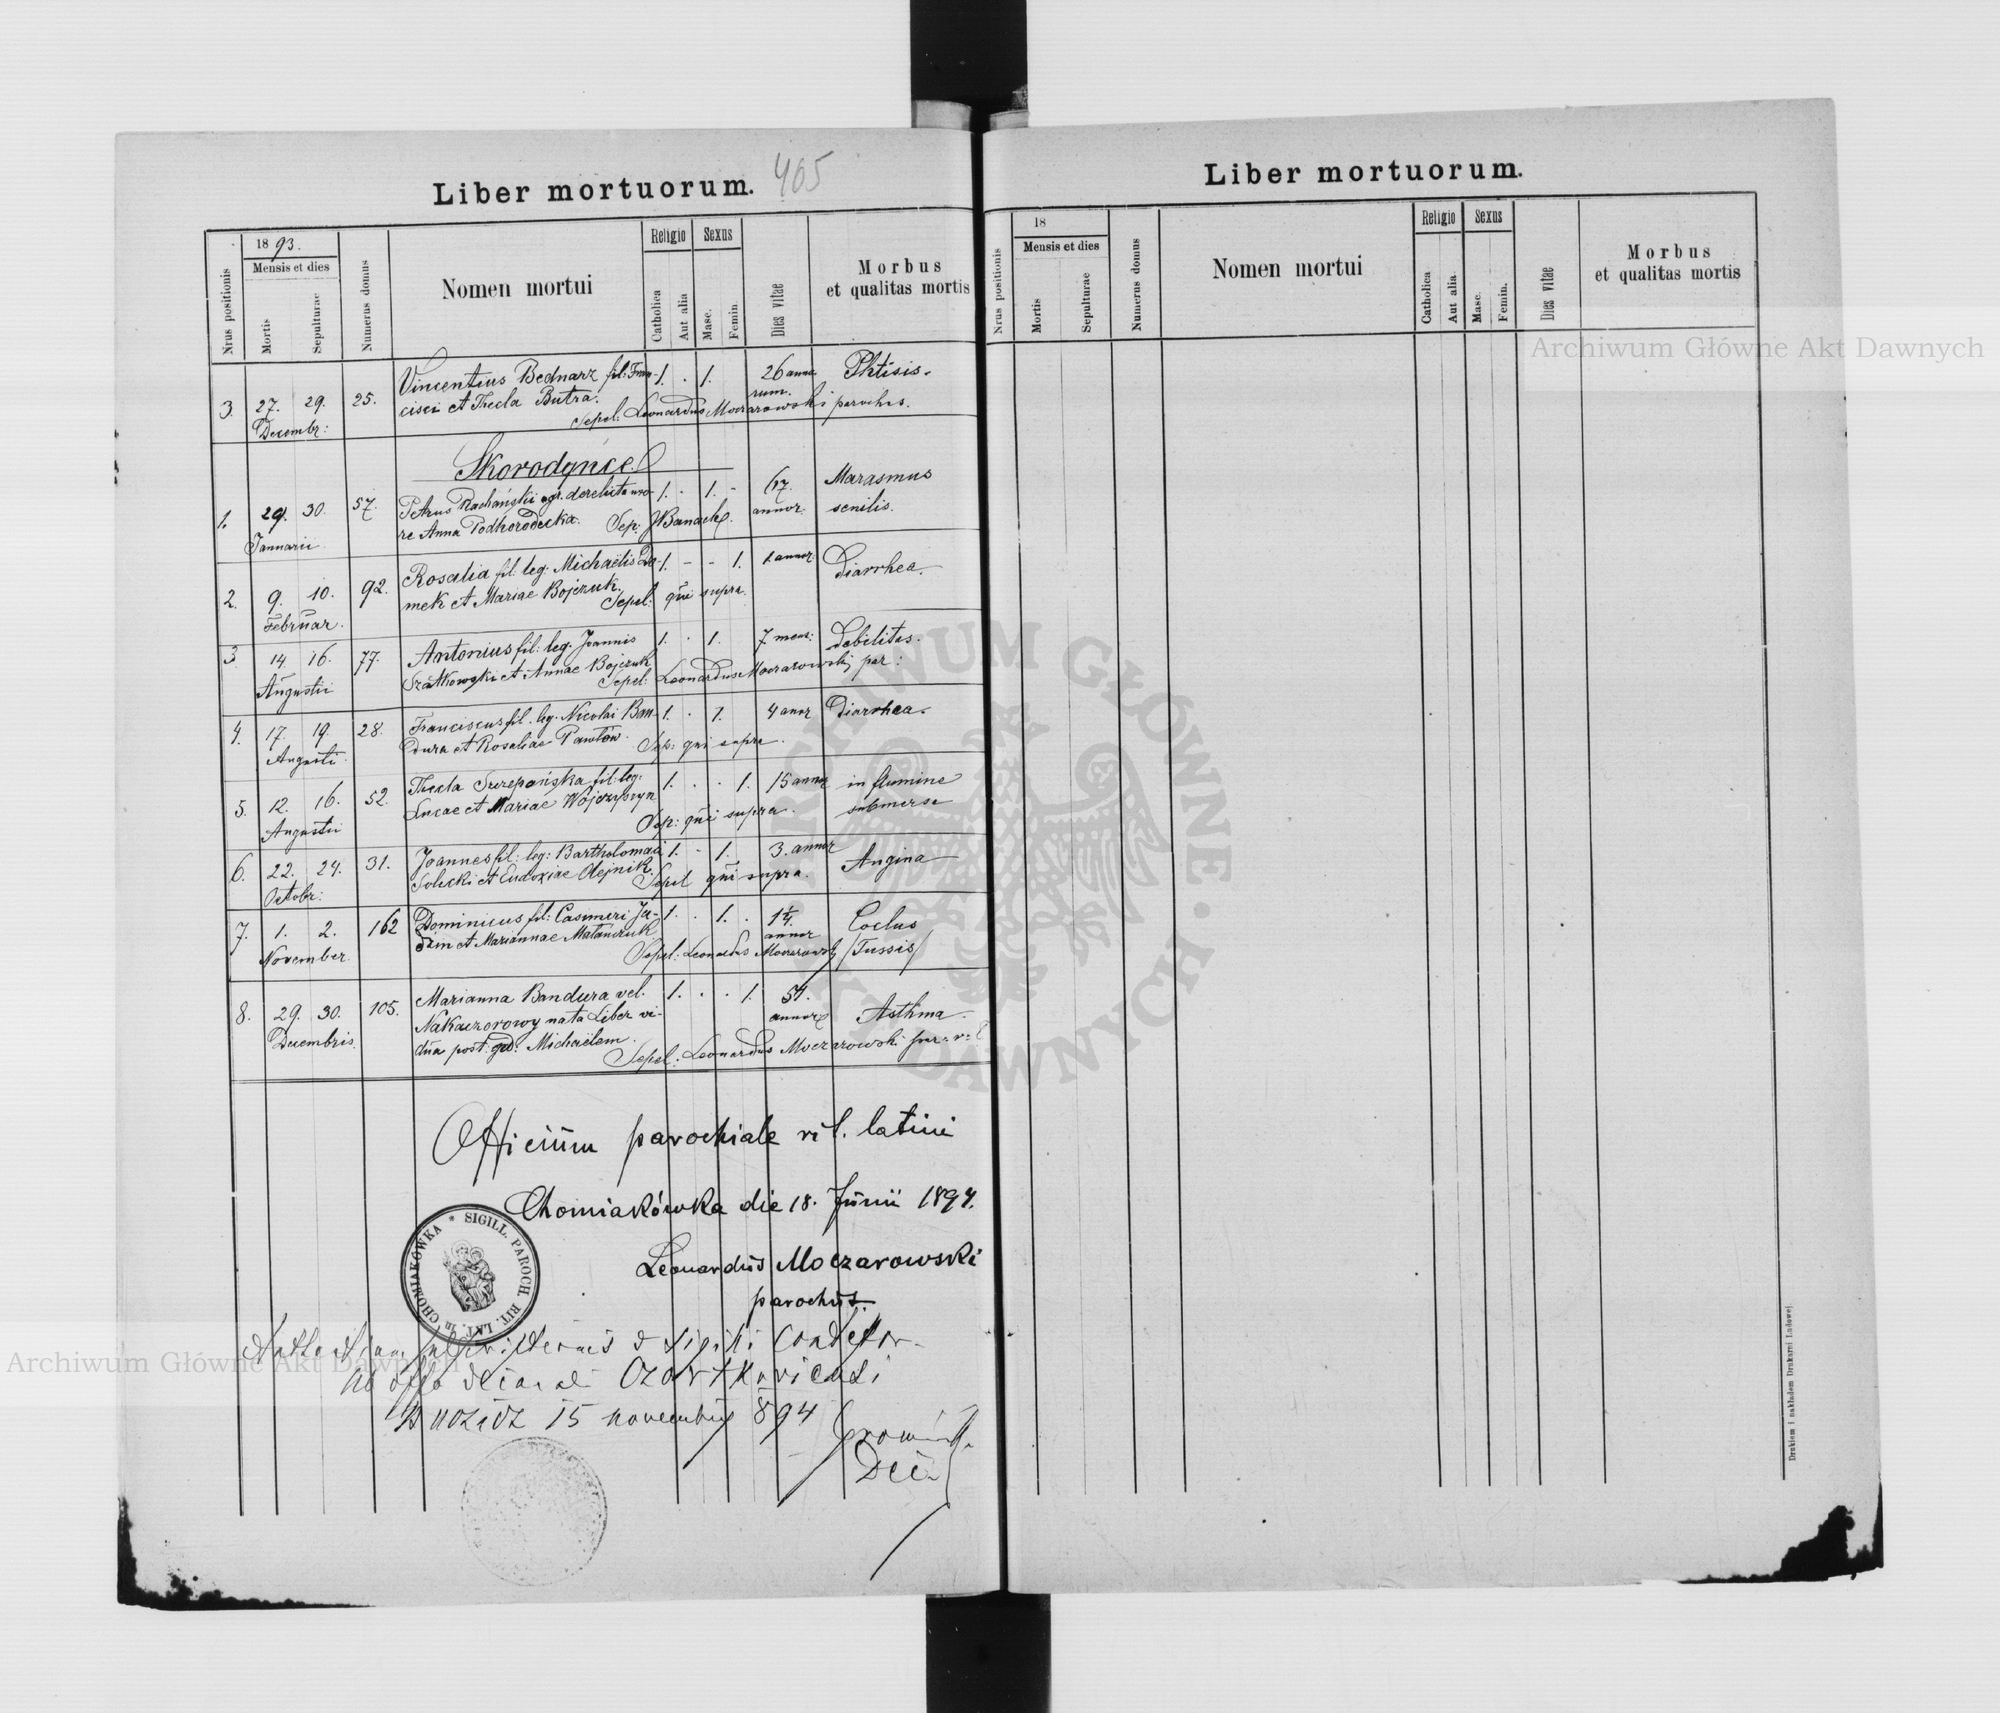 Liber mortuorum.
405
Nrus positionis
1893.
Mensis et dies
Mortis
Sepulturae
Numerus domus
Nomen mortui
Religio
Catholica
Aut alia
Sexus
Masc.
Femin.
Dies vitae
Morbus
et qualitas mortis
3. 27. 29. 25. Vincentius Bednarz fil: Fran- 1. . 1. 26 anno- Phtisis.
Decembr: cisci et Thecla Butra. rum.
Sepel: Leonardus Moczarowski parochus.
Skorodyńce
1. 29. 30. 57. Petrus Rachański agr. derelicta uxo- 1. . 1. - 67. Marasmus
Januarii re Anna Podhorodecka. Sep: J Banach. annor. senilis.
2. 9. 10. 92. Rosalia fil: leg: Michaëlis 1. - - 1. 1 annor: Diarrhea.
Februar. mek et Mariae Bojczuk.
Sepel: qui supra.
3. 14. 16. 77. Antonius fil: leg. Joannis 1. . 1. 7 mens: Debilitas.
Augusti et Annae Bojczuk
Sepel: Leonardus Moczarowski par:
4. 17. 19. 28. Franciscus fil. leg. Nicolai Ban- 1. . 1. 4 annor Diarrhea.
Augusti dura et Rosaliae Pawłów. Sep: qui supra.
5. 12. 16. 52. Thecla Szczepańska fil: leg: 1. . . 1. 15 annor in flumine
Augusti Lucae et Mariae Wojczyszyn submersa
Sep: qui supra.
6. 22. 24. 31. Joannes fil: leg: Bartholomaei 1. - 1. 3. annor Angina
Octobr: Solecki et Eudoxiae Olejnik.
Sepel qui supra.
7. 1. 2. 162 Dominicus fil: Casimiri Ja- 1. . 1. . 1¼ Coclus
November dzin et Mariannae Matańczuk annor (Tussis)
Sepel: Leonardus Moczarowski
8. 29. 30. 105. Marianna Bandura vel. 1. . . 1. 54. Asthma.
Decembris. Nakaczorowy nata Liber vi- annor
dua post Michaëlem.
Sepel: Leonardus Moczarowski par: r: l
Officium parochiale rit. latini
Chomiakówka die 18. Junii 1894.
Leonardus Moczarowski
parochus.
* SIGILL. PAROCH. RIT. LAT. in CHOMIAKÓWKA
Ab offo decanali Czortkoviensi
15 novembris 894
Liber mortuorum.
Nrus positionis
18
Mensis et dies
Mortis
Sepulturae
Numerus domus
Nomen mortui
Religio
Catholica
Aut alia
Sexus
Masc.
Femin.
Dies vitae
Morbus
et qualitas mortis
Drukiem i nakładem Drukarni Ludowej.
Archiwum Główne Akt Dawnych
Archiwum Główne Akt Dawnych
ARCHIWUM GŁÓWNE AKT DAWNYCH